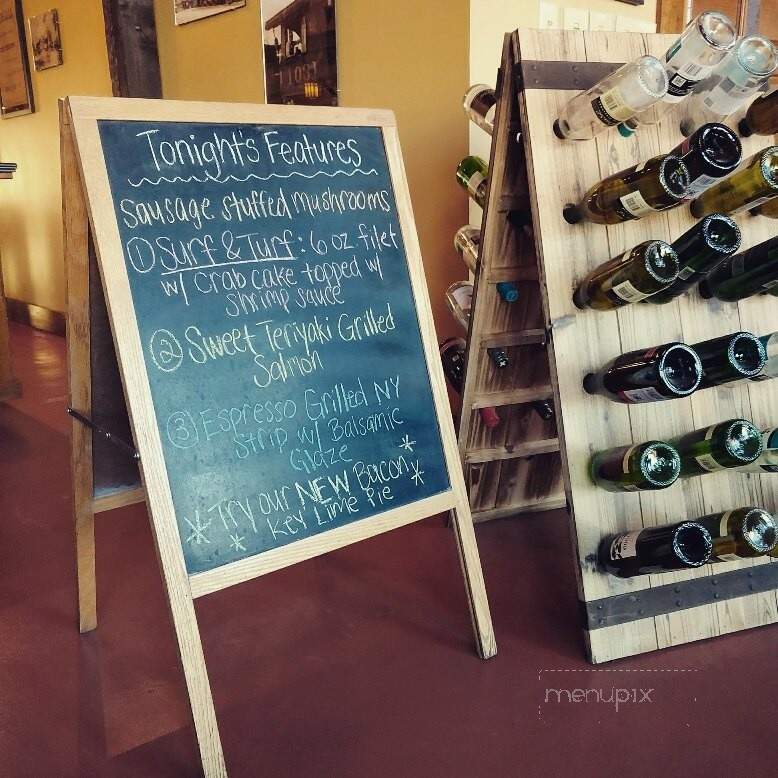 Tonight's Features
Sausage stuffed mushrooms
① Surf & Turf: 6 oz filet
w/ crab cake topped w/
shrimp sauce
② Sweet Teriyaki Grilled
Salmon
③ Espresso Grilled NY
Strip w/ Balsamic
Glaze
Try our NEW Bacon
Key Lime Pie
menupix